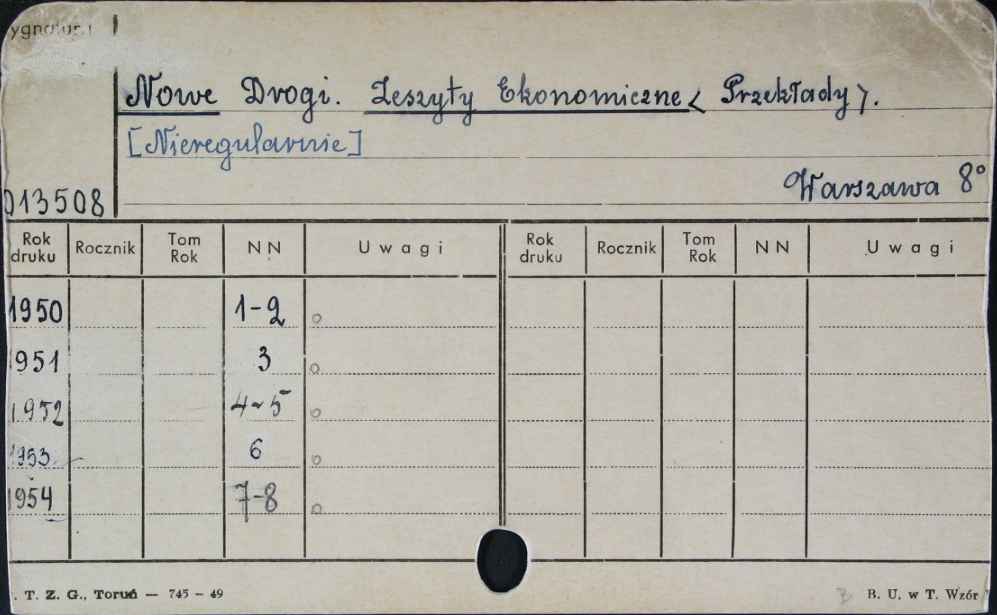 ygnatura
Nowe Drogi. Zeszyty Ekonomiczne < Przekłady >.
[Nieregularnie]
Warszawa 8°
013508
Rok druku Rocznik Tom Rok NN Uwagi Rok druku Rocznik Tom Rok NN Uwagi
1950 1-2
951 3
1952 4-5
1953 6
1954 7-8
. T. Z. G., Toruń — 745 – 49 B. U. w T. Wzór